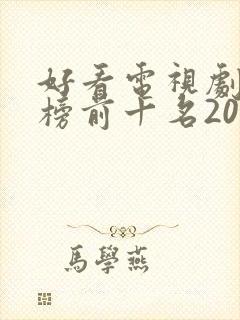 好看電視劇
榜前十名20
馬學燕